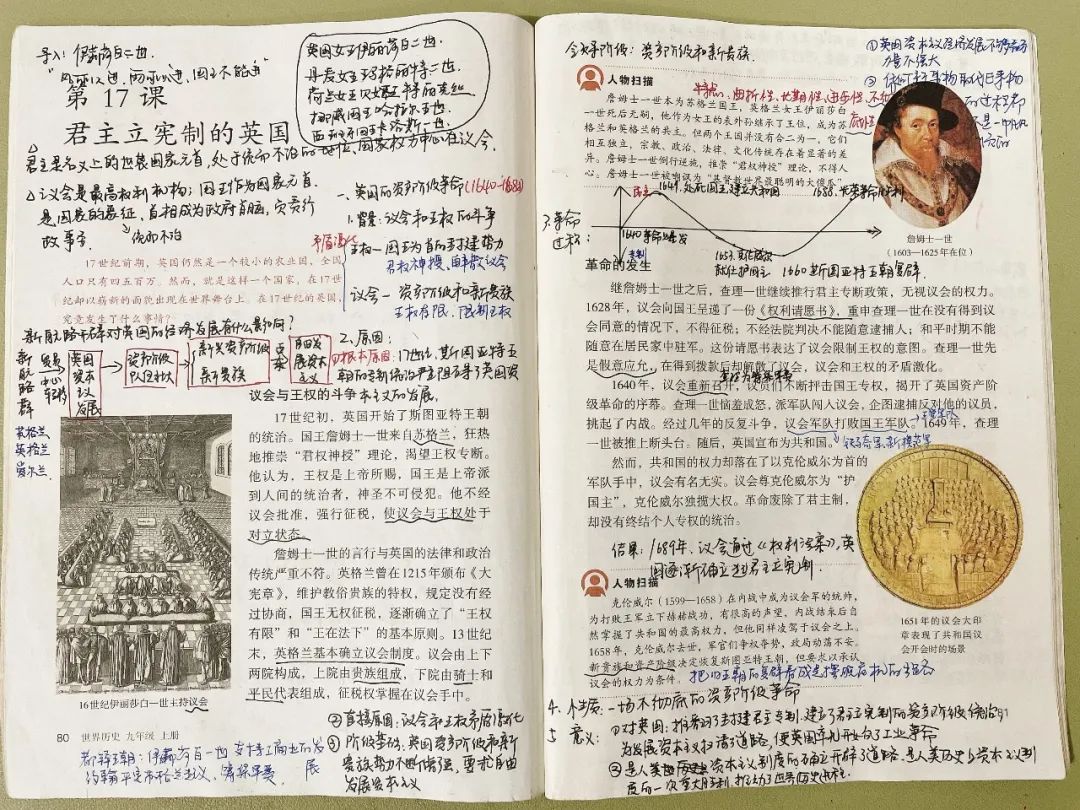 导入：伊丽莎白二世
第 17 课
君主立宪制的英国
英国女王伊丽莎白二世
丹麦女王玛格丽特二世
荷兰女王贝娅特丽克丝
挪威国王哈拉尔五世
西班牙国王卡洛斯一世
君主是名义上的世袭国家元首，处于统而不治的地位，国家权力中心在议会。
议会是最高权利机构；国王作为国家元首
是国家的象征，首相成为政府首脑，负责行
政事务
统而不治
一、英国的资产阶级革命(1640-1688)
1.背景：议会和王权的斗争
矛盾激化
王权—国王为首的封建势力
君权神授、由解散议会
议会—资产阶级和新贵族
王权有限、限制王权
17世纪前期，英国仍然是一个较小的农业国，全国
人口只有四五百万。然而，就是这样一个国家，在17世
纪却以崭新的面貌出现在世界舞台上。在17世纪的英国，
究竟发生了什么事情？
新航路开辟对英国的经济发展有什么影响？
新航路
贸易中心转移
英国资本主义发展
资产阶级队伍壮大
新兴资产阶级
新贵族
要求
自由发展资本主义
2、原因：
①根本原因：17世纪，斯图亚特王
朝的专制统治严重阻碍了英国资
本主义的发展。
议会与王权的斗争
英格兰
苏格兰
爱尔兰
17世纪初，英国开始了斯图亚特王朝
的统治。国王詹姆士一世来自苏格兰，狂热
地推崇“君权神授”理论，渴望王权专断。
他认为，王权是上帝所赐，国王是上帝派
到人间的统治者，神圣不可侵犯。他不经
议会批准，强行征税，使议会与王权处于
对立状态。
詹姆士一世的言行与英国的法律和政治
传统严重不符。英格兰曾在1215年颁布《大
宪章》，维护教俗贵族的特权，规定没有经
过协商，国王无权征税，逐渐确立了“王权
有限”和“王在法下”的基本原则。13世纪
末，英格兰基本确立议会制度。议会由上下
两院构成，上院由贵族组成，下院由骑士和
平民代表组成，征税权掌握在议会手中。
16世纪伊丽莎白一世主持议会
②直接原因：议会和王权矛盾激化
③阶级基础：英国资产阶级和新
贵族势力不断增强，要求自由
发展资本主义
80 世界历史 九年级 上册
都铎王朝：伊丽莎白一世
领导阶级：资产阶级和新贵族
①英国资本主义经济发展不够充分
力量不强大
人物扫描
特点：曲折性、长期性、
詹姆士一世本为苏格兰国王，英格兰女王伊丽莎白
一世死后无嗣，他作为女王的表外孙继承了王位，成为苏
格兰和英格兰的共主。但两个王国并没有合二为一，它们
相互独立，宗教、政治、法律、文化传统存在着显著的差
异。詹姆士一世倒行逆施，推崇“君权神授”理论，不得人
心。詹姆士一世被嘲讽为“基督教世界最聪明的大傻瓜”
詹姆士一世
（1603—1625年在位）
3.革命过程：
民主
专制
1640革命爆发
1649.处死国王,建立共和国
1653.克伦威尔就任护国主
1660斯图亚特王朝复辟
1688.光荣革命胜利
革命的发生
继詹姆士一世之后，查理一世继续推行君主专断政策，无视议会的权力。
1628年，议会向国王呈递了一份《权利请愿书》，重申查理一世在没有得到议
会同意的情况下，不得征税；不经法院判决不能随意逮捕人；和平时期不能
随意在居民家中驻军。这份请愿书表达了议会限制王权的意图。查理一世先
是假意应允，在得到拨款后却解散了议会，议会和王权的矛盾激化。
1640年，议会重新召开，议员们不断抨击国王专权，揭开了英国资产阶
级革命的序幕。查理一世恼羞成怒，派军队闯入议会，企图逮捕反对他的议员，
挑起了内战。经过几年的反复斗争，议会军队打败国王军队。1649年，查理
一世被推上断头台。随后，英国宣布为共和国。
然而，共和国的权力却落在了以克伦威尔为首的
军队手中，议会有名无实。议会尊克伦威尔为“护
国主”，克伦威尔独揽大权。革命废除了君主制，
却没有终结个人专权的统治。
结果：1689年，议会通过《权利法案》，英
国逐渐确立起君主立宪制。
人物扫描
克伦威尔（1599—1658）在内战中成为议会军的统帅，
为打败王军立下赫赫战功，有很高的声望，内战结束后自
然掌握了共和国的最高权力，但他同样凌驾于议会之上。
1658年，克伦威尔去世，军官们争权夺势，政局动荡不安。
新贵族和资产阶级决定恢复斯图亚特王朝，但要求以承认
议会的权力为条件。
把旧王朝的复辟看成是摆脱危机的出路
1651年的议会大印
章表现了共和国议
会开会时的场景
4、性质：一场不彻底的资产阶级革命
5 意义：①对英国：推翻了封建君主专制，建立了君主立宪制的资产阶级统治，
为发展资本主义扫清道路，使英国率先开始了工业革命
②是人类历史上资本主义制度的确立开辟了道路，是人类历史上资本主义制
度的一次重大胜利，推动了世界历史进程.